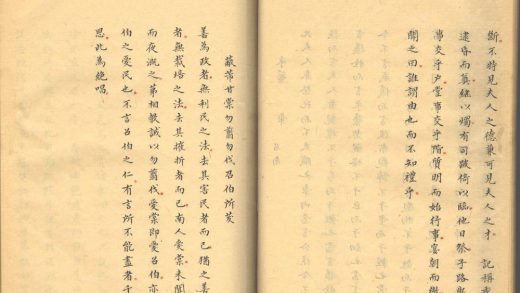 斷不特見夫人之德兼可見夫人之才　記稱
逮昏而奠繼以燭有司跛倚以臨他日祭子路與
事交乎户堂事交乎階質明而始行事晏朝而
聞之曰誰謂由也而不知禮乎
蔽芾甘棠勿翦勿伐召伯所茇
善為政者無利民之法去其害民者而已猶之善
者無栽培之法去其摧折者而已南人愛棠未聞
而夜溉之第相教誡以勿翦伐愛棠即愛召伯亦
伯之愛民也不言召伯之仁有言所不能盡者于
思此為絶唱